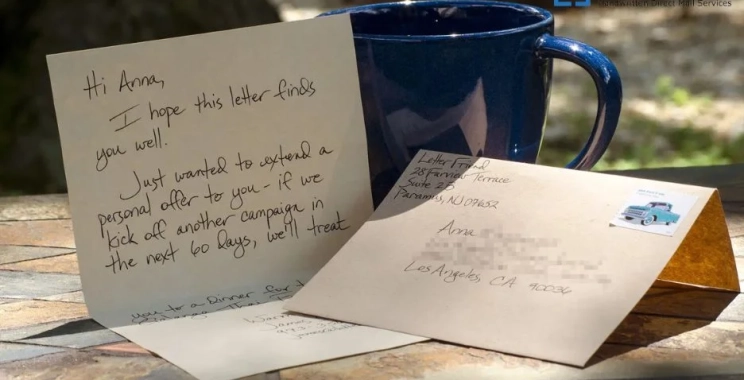 Direct Mail Services
Hi Anna,
I hope this letter finds
you well.
Just wanted to extend a
personal offer to you - if we
kick off another campaign in
the next 60 days, we'll treat
you to a Dinner for
Letter Friend
28 Fairview Terrace
Suite 2B
Paramus, NJ 07652
Anna
Los Angeles, CA 90036